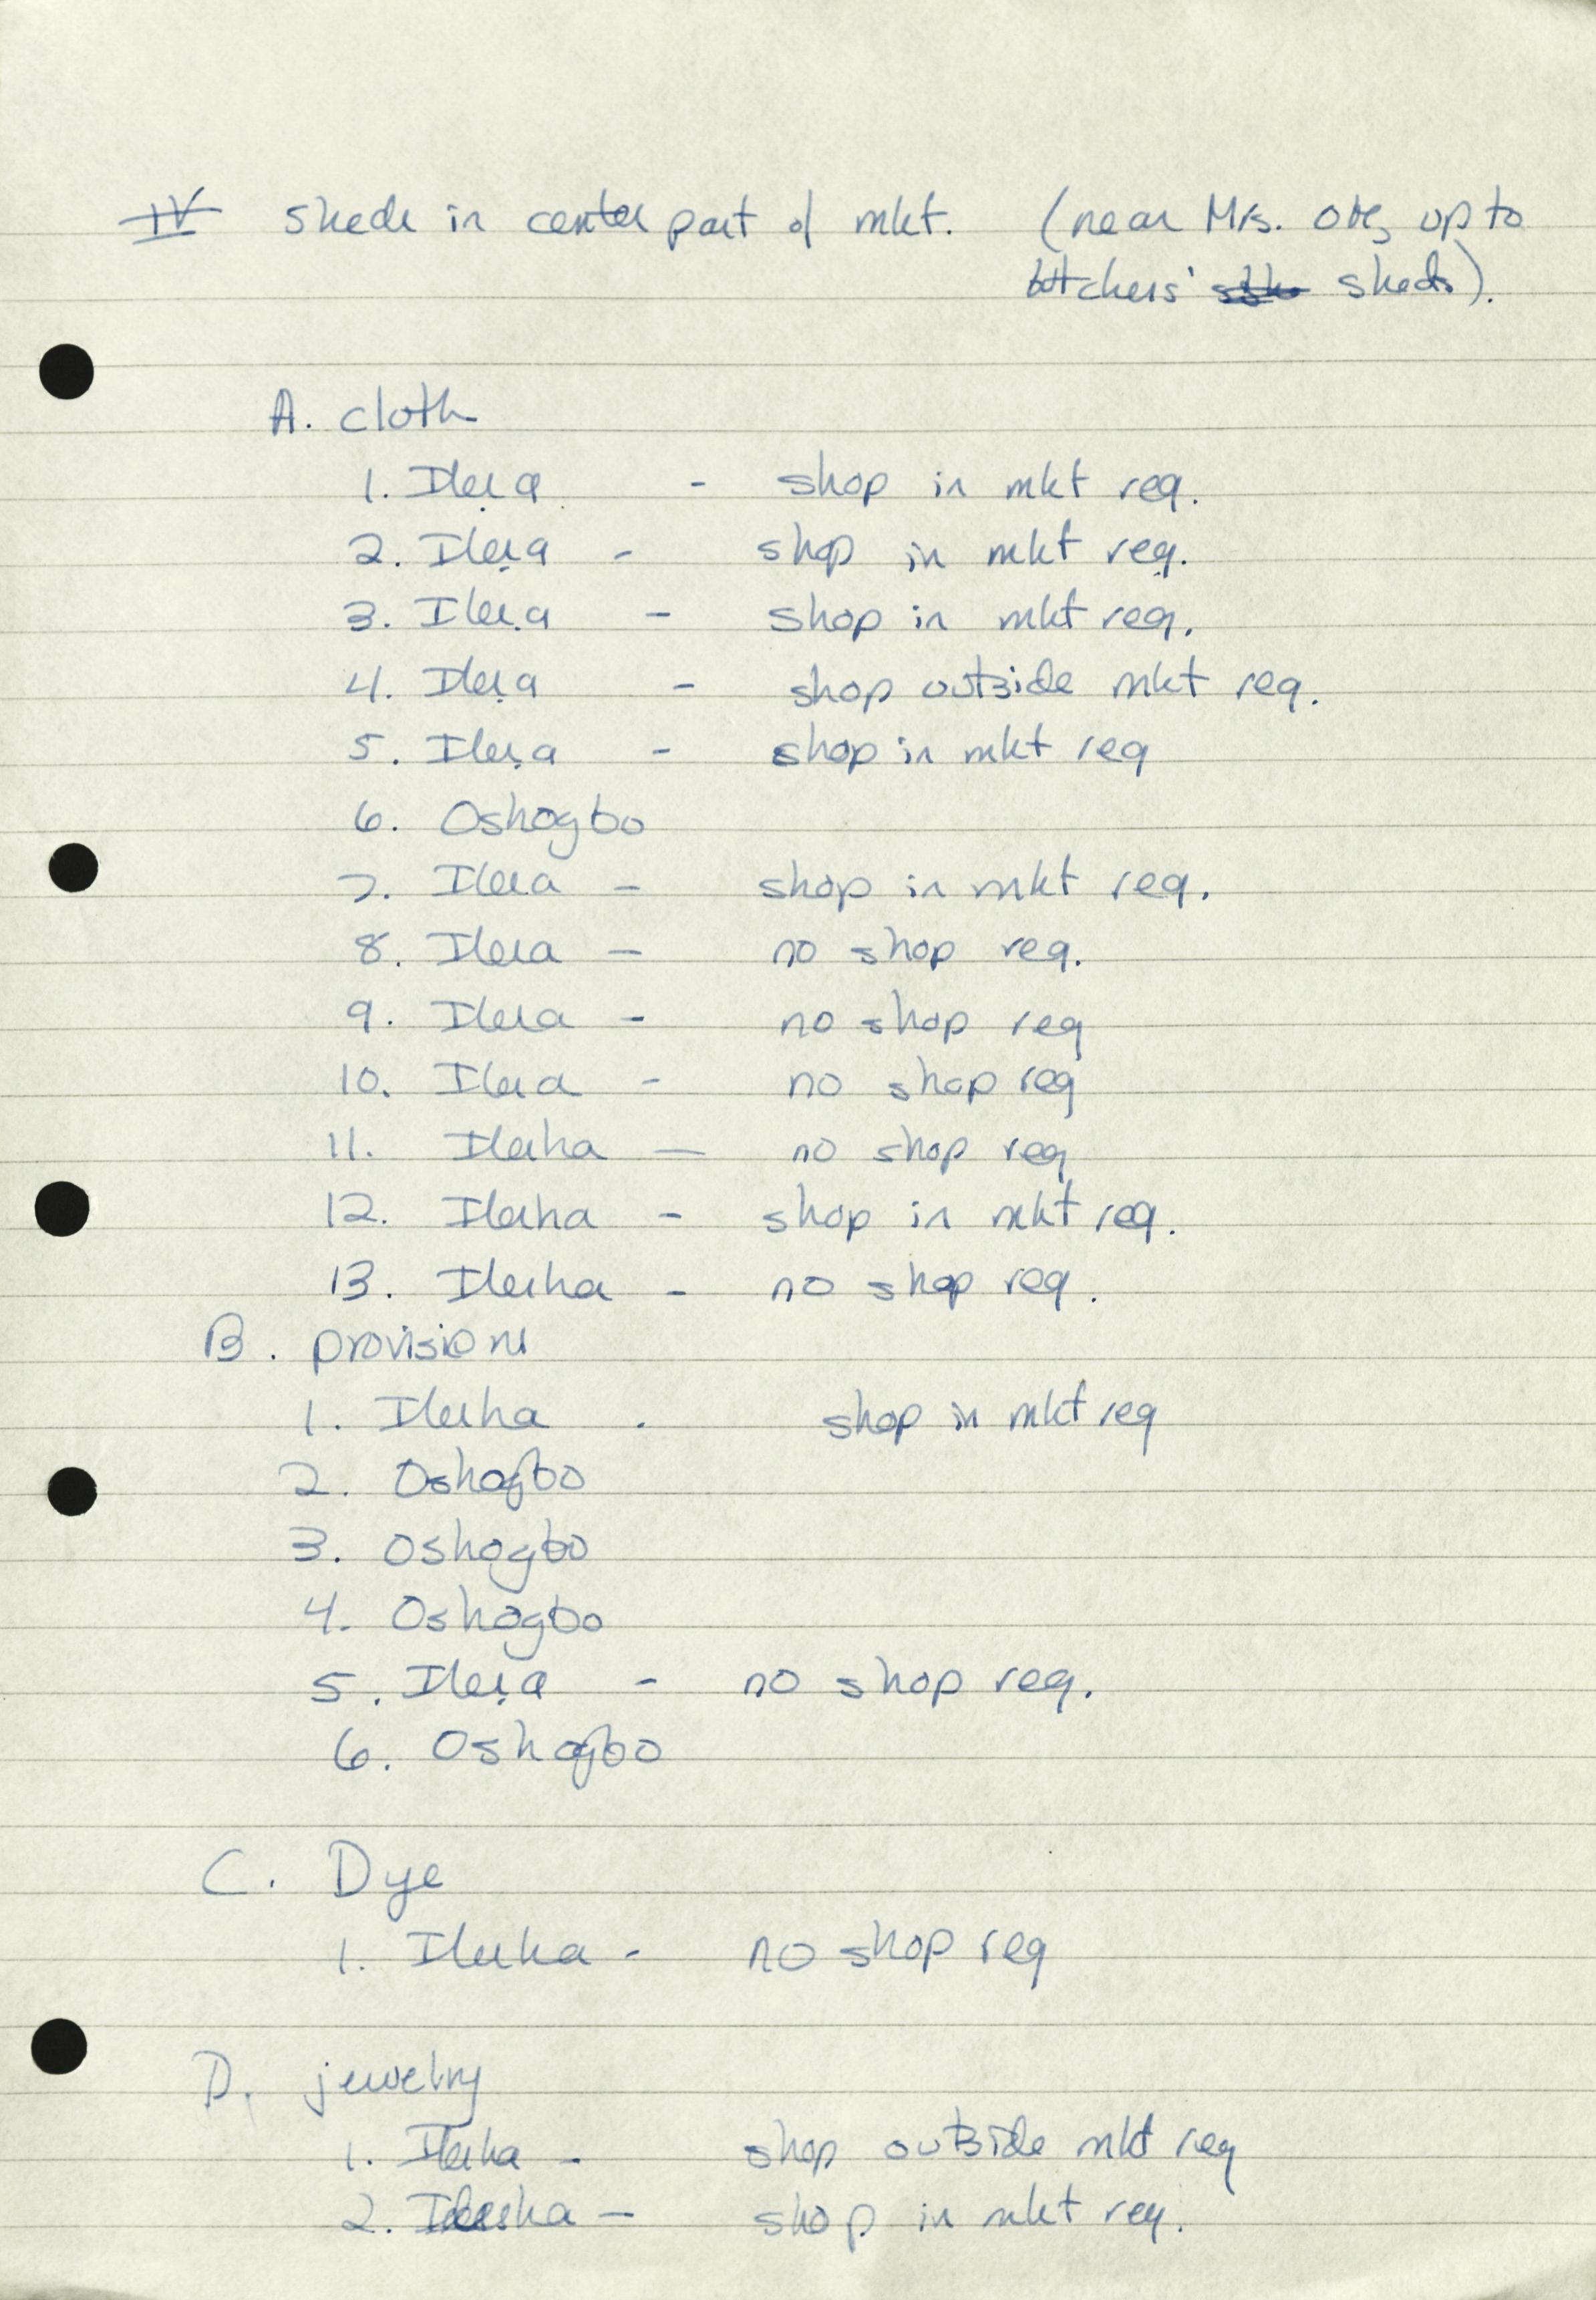 IV sheds in center part of mkt. (near Mrs. Ote, up to
butchers' sheds).
A. cloth
1. Ileṣa - shop in mkt req.
2. Ileṣa - shop in mkt req.
3. Ileṣa - shop in mkt req.
4. Ileṣa - shop outside mkt req.
5. Ileṣa - shop in mkt req
6. Oshogbo
7. Ilesa - shop in mkt req.
8. Ilesa - no shop req.
9. Ilesa - no shop req
10. Ilesa - no shop req
11. Ilesha - no shop req
12. Ilesha - shop in mkt req.
13. Ilesha - no shop req.
B. provisions
1. Ilesha . shop in mkt req
2. Oshogbo
3. Oshogbo
4. Oshogbo
5. Ileṣa - no shop req.
6. Oshogbo
C. Dye
1. Ilesha - no shop req
D. jewelry
1. Ilesha - shop outside mkt req
2. Ilesha - shop in mkt req.